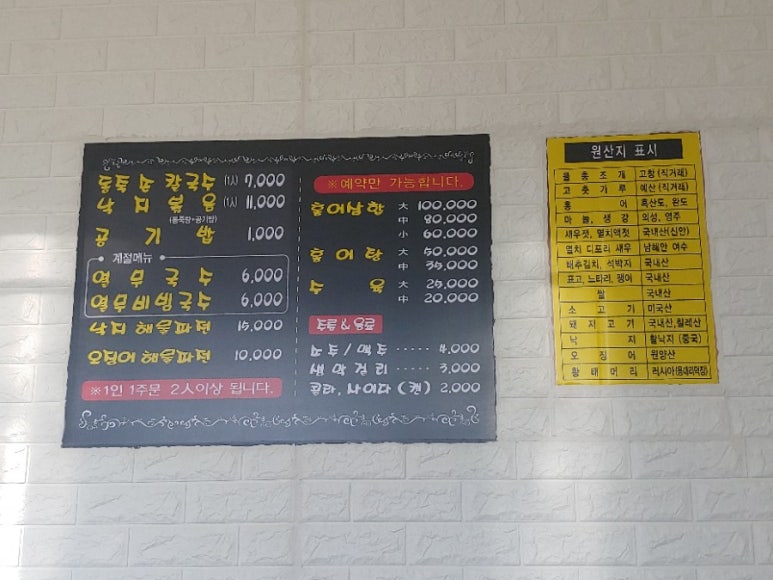 동죽조개칼국수 (1人) 7,000
낙지볶음 (1人) 11,000
(동죽탕+공기밥)
공기밥 1,000
계절메뉴
열무국수 6,000
열무비빔국수 6,000
낙지해물파전 15,000
오징어해물파전 10,000
※1인 1주문 2人이상 됩니다.
※예약만 가능합니다.
홍어삼합 大 100,000
中 80,000
小 60,000
홍어탕 大 50,000
中 35,000
수육 大 25,000
中 20,000
소주 / 맥주 4,000
막걸리 3,000
콜라, 사이다 (캔) 2,000
원산지 표시
물총조개 고창 (직거래)
고춧가루 예산 (직거래)
홍어 흑산도, 완도
마늘, 생강 의성, 영주
새우젓, 멸치액젓 국내산(신안)
멸치 디포리 새우 남해안 여수
배추김치, 석박지 국내산
표고, 느타리, 팽이 국내산
쌀 국내산
소고기 미국산
돼지고기 국내산,칠레산
낙지 활낙지 (중국)
오징어 원양산
황태머리 러시아(용대리덕장)